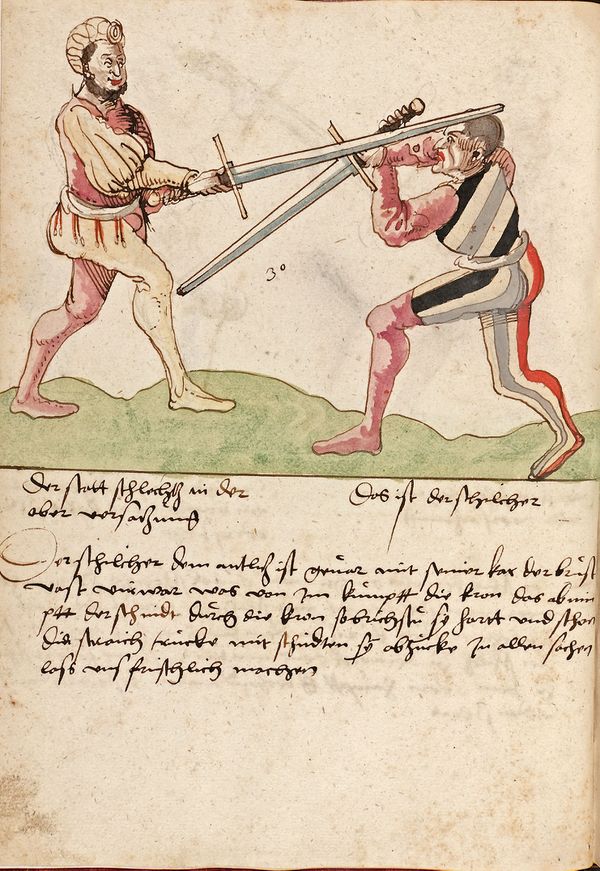 30
Der statt schlechtz in der
ober versatzung
Das ist der schilcher
Der schilcher dem antlitz ist gevar mit seiner kar der brust
vast virwar was von im kumptt die kron das abnim
ptt der schnidt durch die kron so brichstu sy hartt und schon
die straich trucke mit schnidten sy abzucke In allen sachen
lass uns frischlich machen